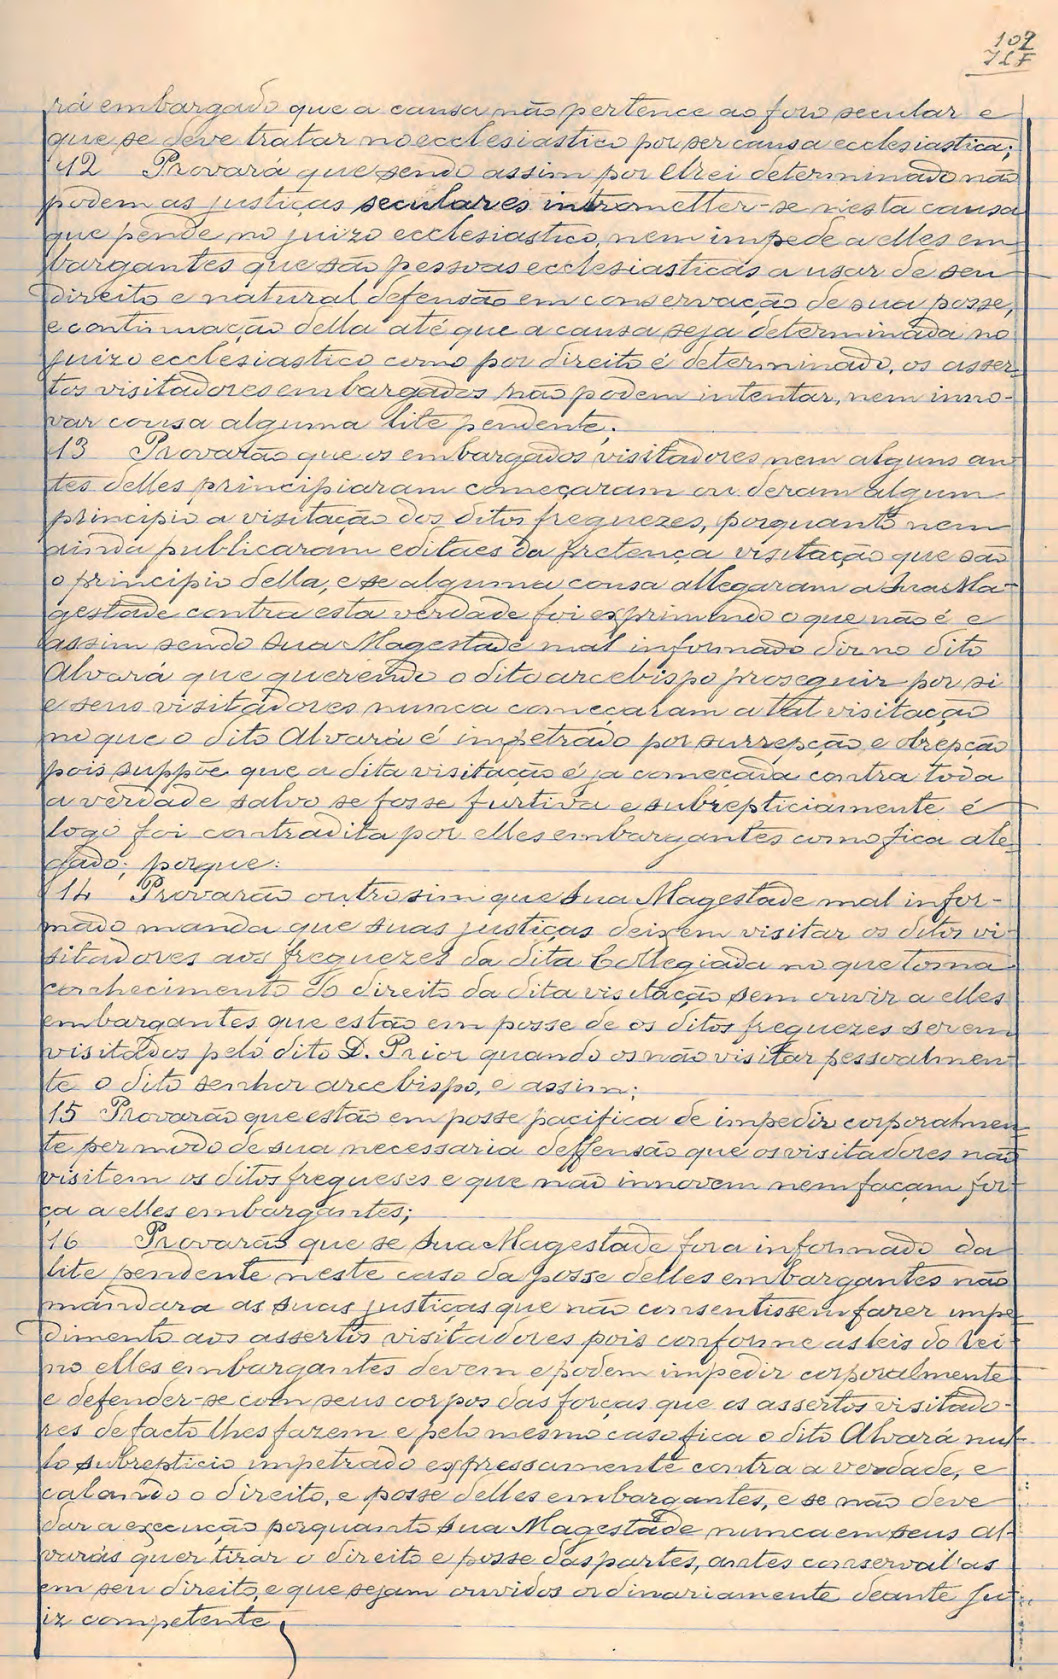 102
JLF
rá embargado que a causa não pertence ao foro secular e
que se deve tratar no ecclesiastico por ser causa ecclesiastica;
12 Provará que sendo assim por elrei determinado não
podem as justiças seculares intrometter-se nesta causa
que pende no juizo ecclesiastico, nem impede a elles em-
bargantes que são pessoas ecclesiasticas a usar de seu
direito e natural defensão em conservação de sua posse,
e continuação della até que a causa seja determinada no
juizo ecclesiastico como por direito é determinado, os asser-
tos visitadores embargados não podem intentar, nem inno-
var cousa alguma lite pendente;
13 Provarão que os embargados visitadores nem alguns an-
tes delles principiaram começaram ou deram algum
principio a visitação dos ditos freguezes, porquanto nem
ainda publicaram editaes da pretença visitação que são
o principio della, e se alguma cousa allegaram a Sua Ma-
gestade contra esta verdade foi exprimindo o que não é e
assim sendo Sua Magestade mal informado diz no dito
Alvará que querendo o dito arcebispo proseguir por si
e seus visitadores nunca começaram a tal visitação
no que o dito Alvará é impetrado por surrepção e obrepção
pois suppõe que a dita visitação é ja começada contra toda
a verdade salvo se fosse furtiva e subrepticiamente é
logo foi contradita por elles embargantes como fica ale-
gado; porque:
14 Provarão outrosim que Sua Magestade mal infor-
mado manda que suas justiças deixem visitar os ditos vi-
sitadores aos freguezes da dita Collegiada no que toma
conhecimento do direito da dita visitação sem ouvir a elles
embargantes que estão em posse de os ditos freguezes serem
visitados pelo dito D. Prior quando os não visitar pessoalmen-
te o dito senhor arcebispo, e assim;
15 Provarão que estão em posse pacifica de impedir corporalmen-
te per modo de sua necessaria deffensão que os visitadores não
visitem os ditos fregueses e que não innovem nem façam for-
ça a elles embargantes;
16 Provarão que se Sua Magestade fora informado da
lite pendente neste caso da posse delles embargantes não
mandara as suas justiças que não consentissem fazer impe-
dimento aos assertos visitadores pois conforme as leis do rei-
no elles embargantes devem e podem impedir corporalmente
e defender-se com seus corpos das forças que os assertos visitado-
res de facto lhes fazem e pelo mesmo caso fica o dito Alvará nul-
lo subrepticio impetrado expressamente contra a verdade, e
calando o direito, e posse delles embargantes, e se não deve
dar a execução porquanto Sua Magestade nunca em seus al-
varás quer tirar o direito e posse das partes, antes conserval'as
em seu direito, e que sejam ouvidos ordinariamente deante ju-
iz competente